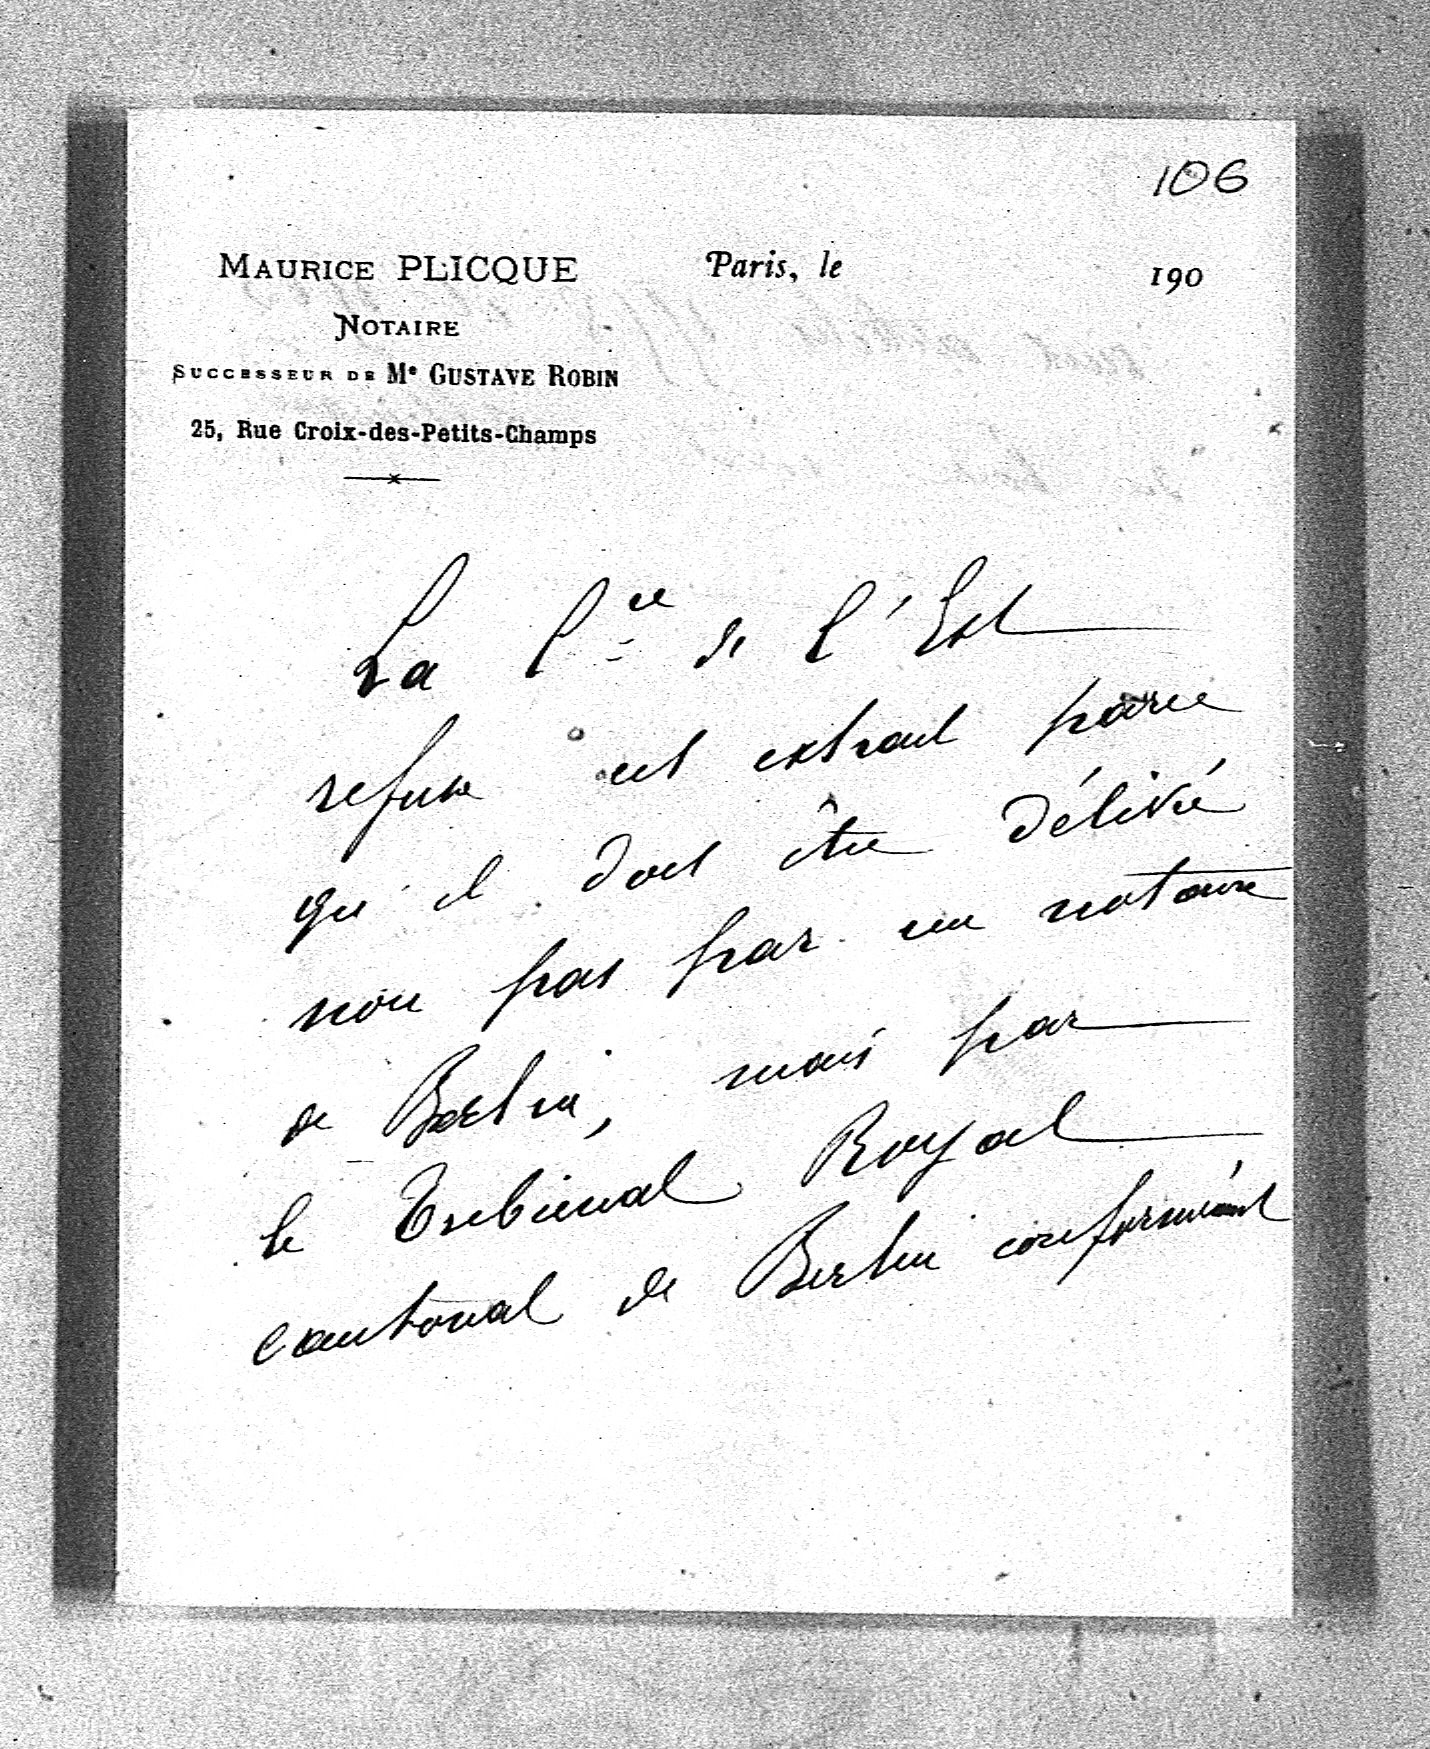 106
MAURICE PLICQUE
NOTAIRE
SUCCESSEUR DE Me GUSTAVE ROBIN
25, Rue Croix-des-Petits-Champs
Paris, le 190
La Cie de l'Est
refuse cet extrait parce
qu'il doit être délivré
non pas par un notaire
de Berlin, mais par
le Tribunal Royal
cantonal de Berlin conformémt